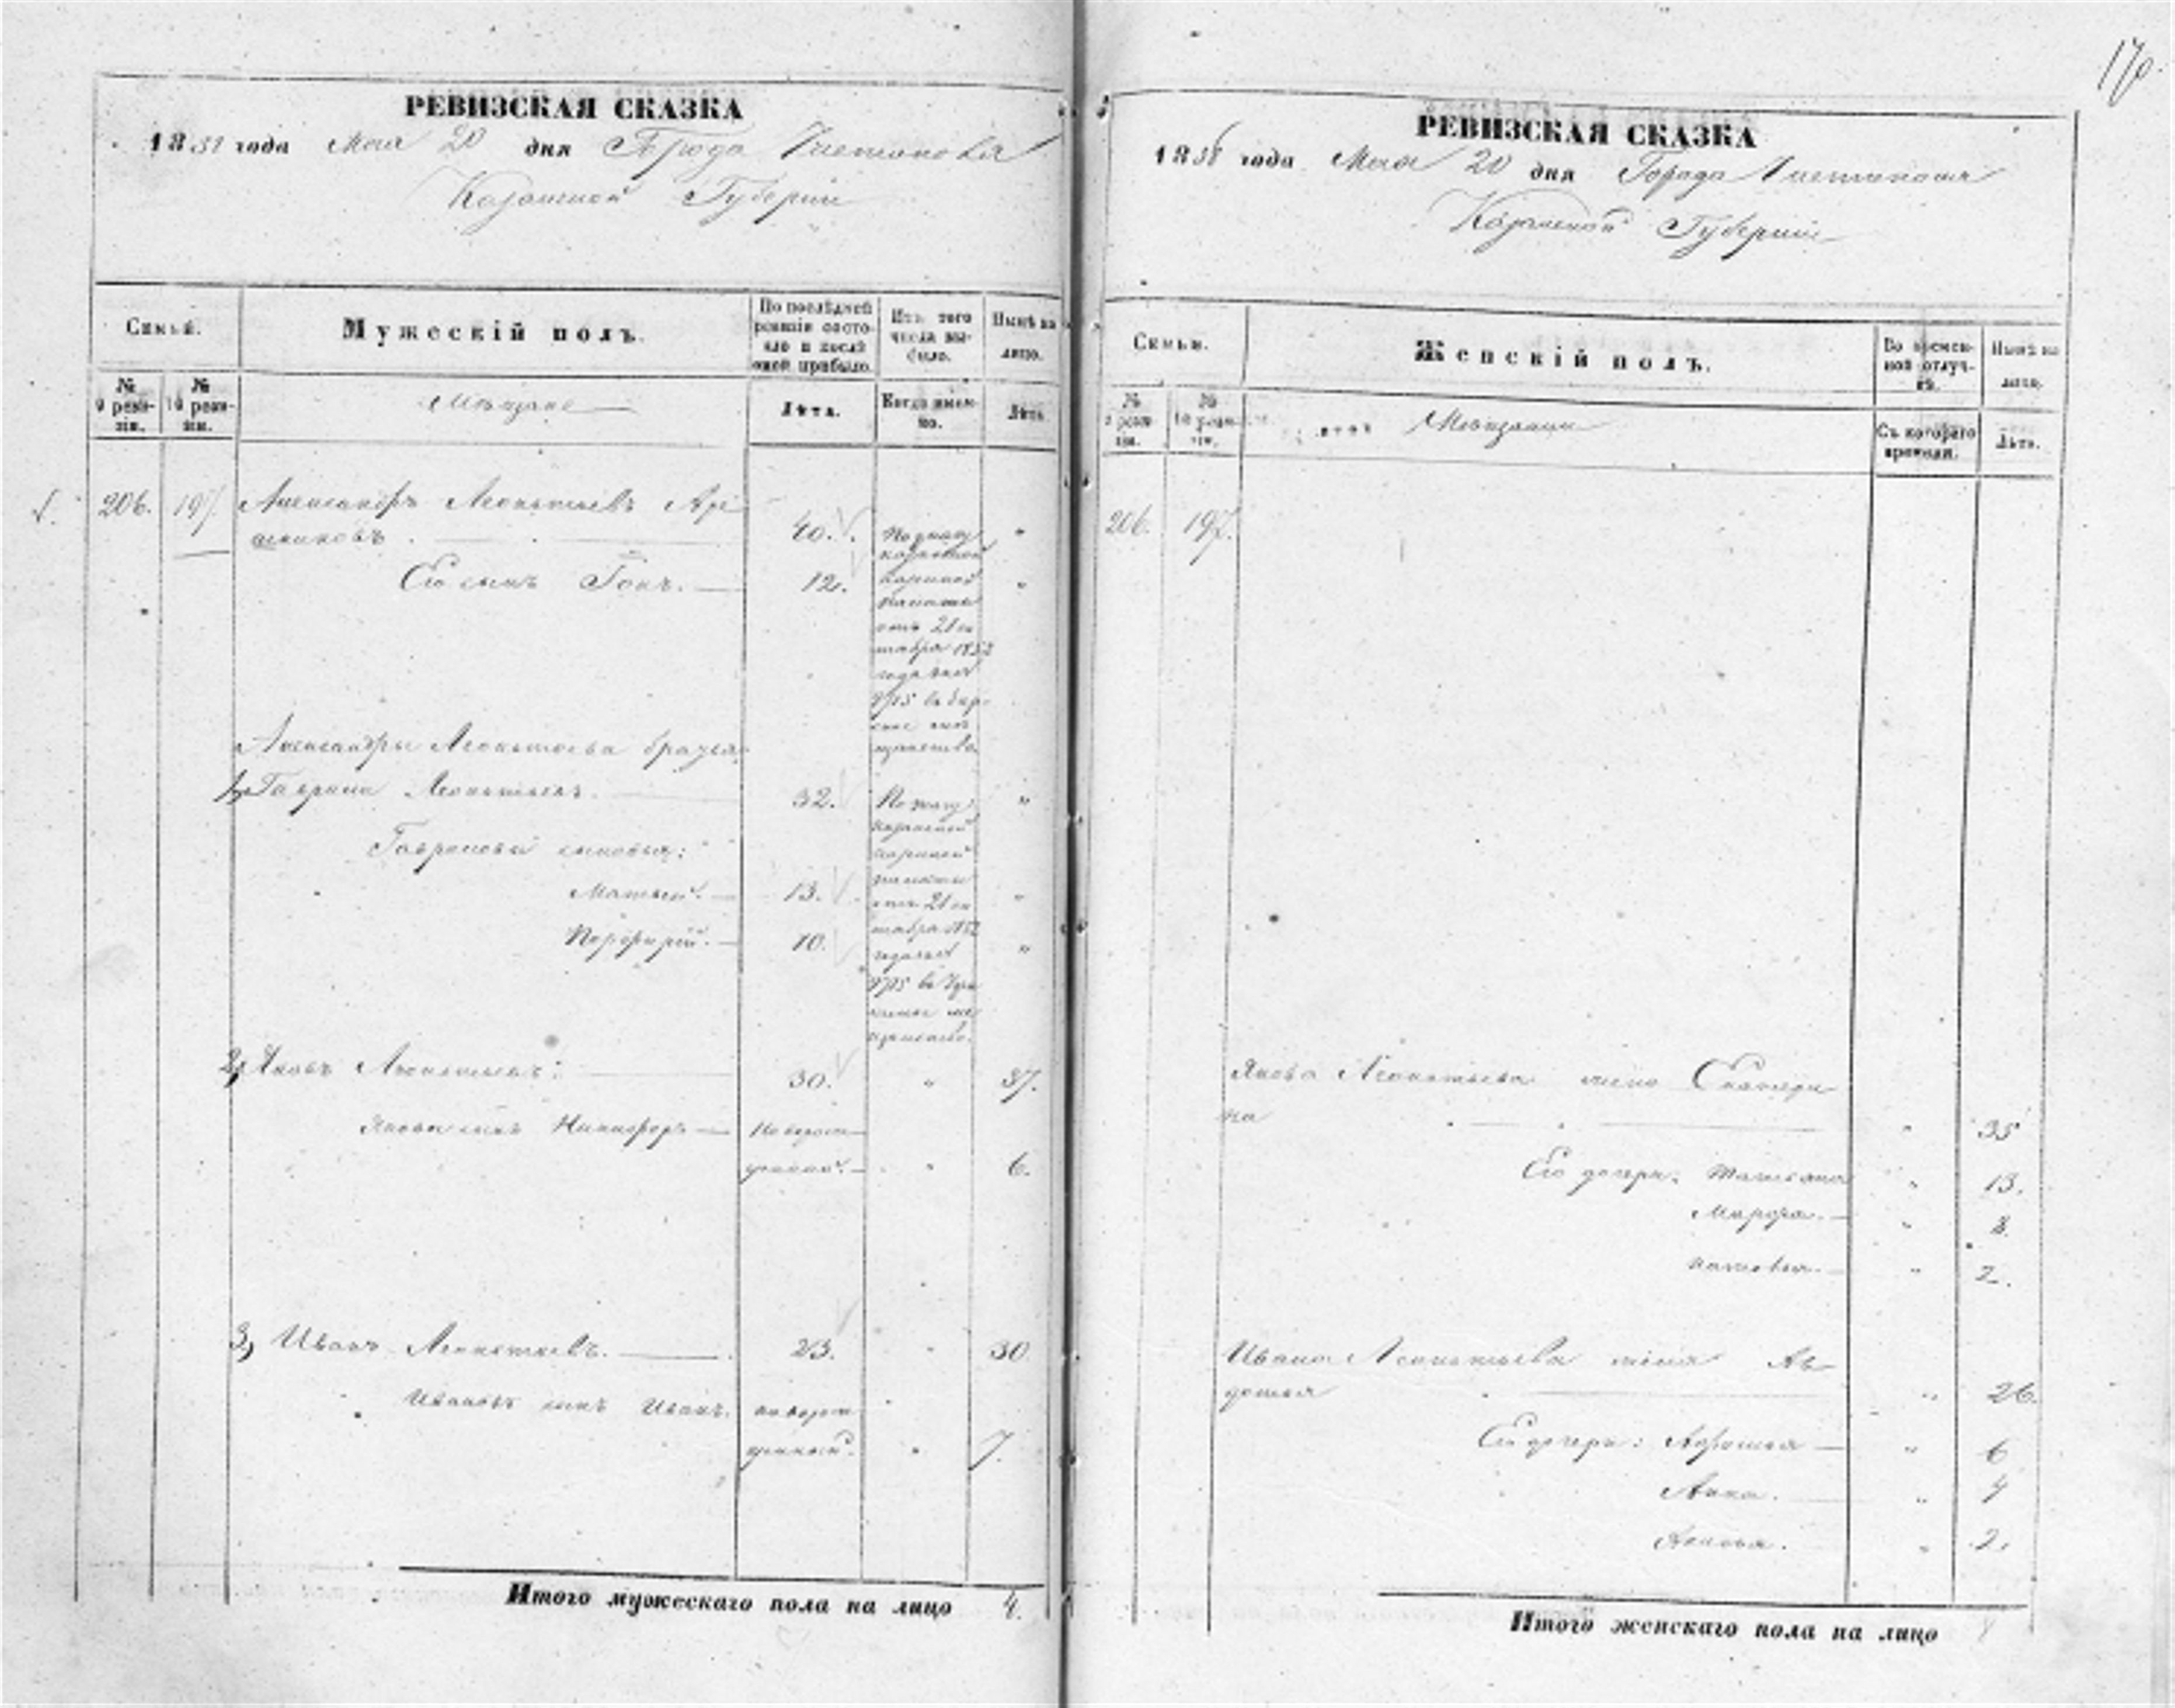 170.
РЕВИЗСКАЯ СКАЗКА
1858 года Мая 20 дня Города Чистополя
Казанской Губерніи
Семьи.
Мужескій полъ.
По послѣдней ревизіи состояло и послѣ оной прибыло.
Изъ того числа выбыло.
Нынѣ на лицо.
№ 9 ревизіи.
№ 10 ревизіи.
Мѣщане
Лѣта.
Когда именно.
Лѣта
206. 197. Александръ Леонтьевъ
40. "
Его сынъ 12. "
По указу
Казанской
Казенной
Палаты
отъ 21 ок
тября 1852
года за №
9715 въ
мѣ
щанство
Александры Леонтьева братья
1, Гаврила Леонтьевъ. 32. "
Гавриловы сыновья:
Матвей. 13. "
Порфирій. 10. "
По указу
Казанской
Казенной
Палаты
отъ 21 ок
тября 1852
года за №
9715 въ
мѣ
щанство.
2, Яковъ Леонтьевъ: 30. " 37.
Якова сынъ Никифоръ Новорож
денный. " 6.
3, Иванъ Леонтьевъ. 23. " 30
Ивановъ сынъ Иванъ. новорож
денный. " 7.
Итого мужескаго пола на лицо 4.
РЕВИЗСКАЯ СКАЗКА
1858 года Мая 20 дня Города Чистополя
Казанской Губерніи
Семьи.
Женскій полъ.
Во временной отлучкѣ.
Нынѣ на лицо.
№ 9 ревизіи.
№ 10 ревизіи.
Мѣщанки
Съ котораго времени.
Лѣта.
206. 197.
Якова Леонтьева жена
на " 35
Его дочери: Татьяна " 13.
Марфа. " 8.
" 2.
Ивана Леонтьева жена Ав
дотья " 26.
Его дочери: " 6
Анна. " 4
" 2.
Итого женскаго пола на лицо